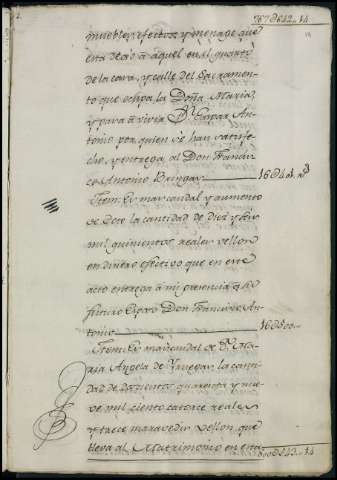 767 D642..14
muebles, efectos y menage que
esta dejó a aquel en el quarto
de la casa, y calle del Sacramen-
to que ocupa la Doña Maria,
y para a vivir Dn. Gaspar An-
tonio por quien se han satisfe-
cho, y entrega al Don Francis-
co Antonio
Item: Es mas caudal y aumento
de Dote la cantidad de Diez y seis
mil quinientos reales vellon
en dinero efectivo que en este
acto entrega a mi presencia a su
futuro Esposo Don Francisco An-
tonio 16 D500..
Item: Es mas caudal de Da. Ma-
ria Angela de la canti-
dad de doscientos quarenta y nue-
ve mil ciento catorce reales
y trece maravedis vellon, que
lleva al Matrimonio en esta